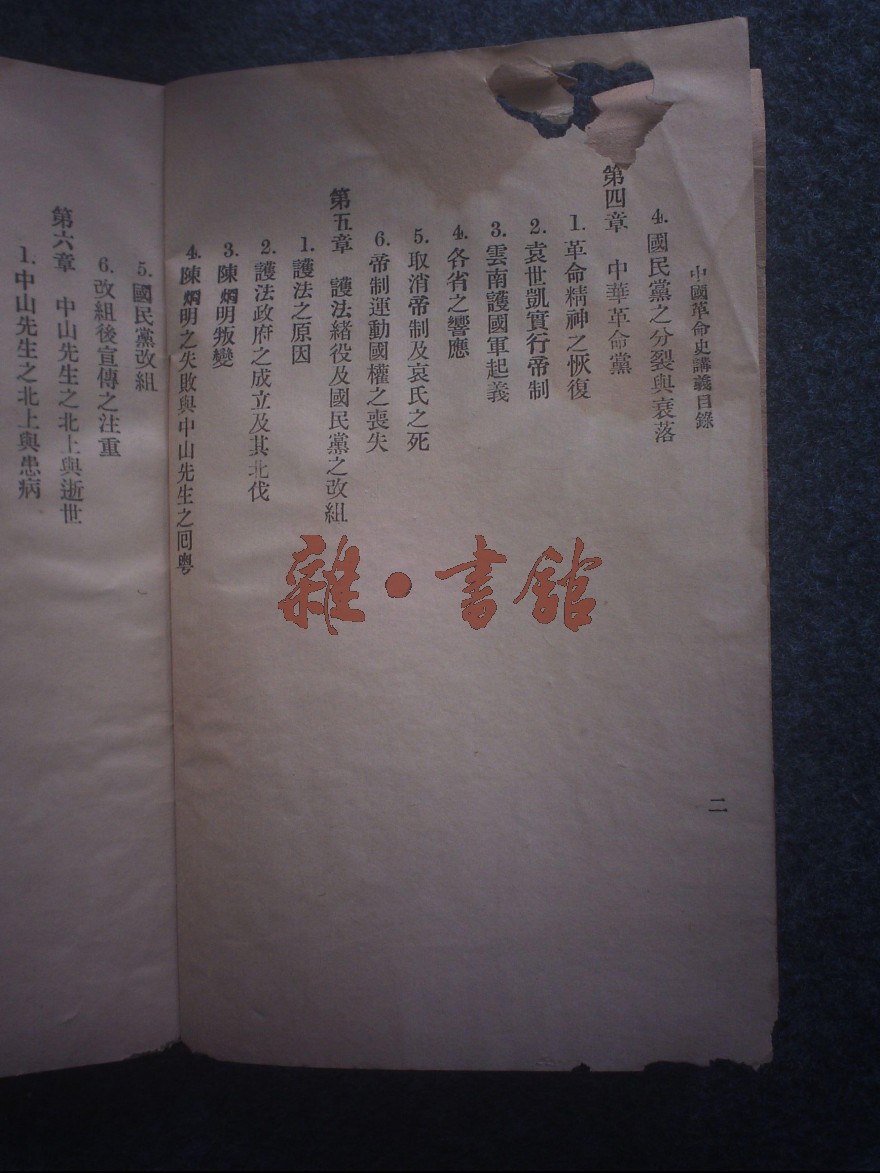 中國革命史講義目錄
4. 國民黨之分裂與衰落
第四章 中華革命黨
1. 革命精神之恢復
2. 袁世凱實行帝制
3. 雲南護國軍起義
4. 各省之響應
5. 取消帝制及哀氏之死
6. 帝制運動國權之喪失
第五章 護法緒役及國民黨之改組
1. 護法之原因
2. 護法政府之成立及其北伐
3. 陳烱明叛變
4. 陳烱明之失敗與中山先生之囘粵
二
5. 國民黨改組
6. 改組後宣傳之注重
第六章 中山先生之北上與逝世
1. 中山先生之北上與患病
雜·書館